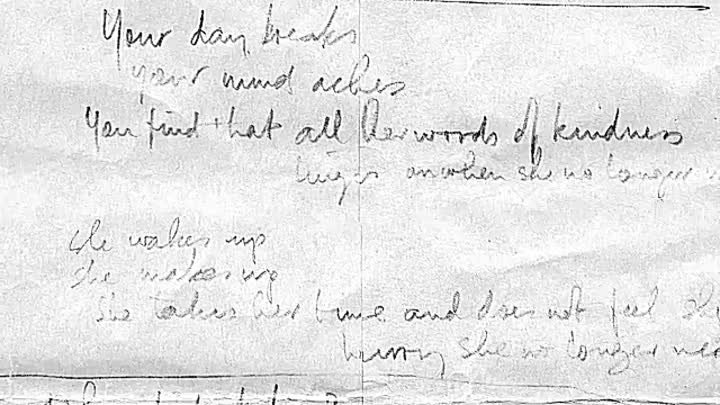 Your day breaks
your mind aches
You find that all her words of kindness
linger on when she no longer n
She wakes up
She makes up
She takes her time and does not feel she
hurry she no longer nee